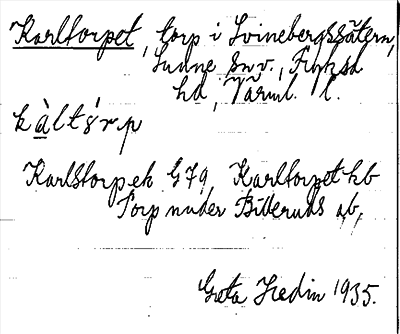 Karltorpet, torp i Svinebergssätern,
Sunne sn v., Fryksd
hd, Värml. l.
kàltɷrp
Karlstorp ek G 79, Karltorpet hb
Torp under Billeruds ab,
Greta Hedin 1935.